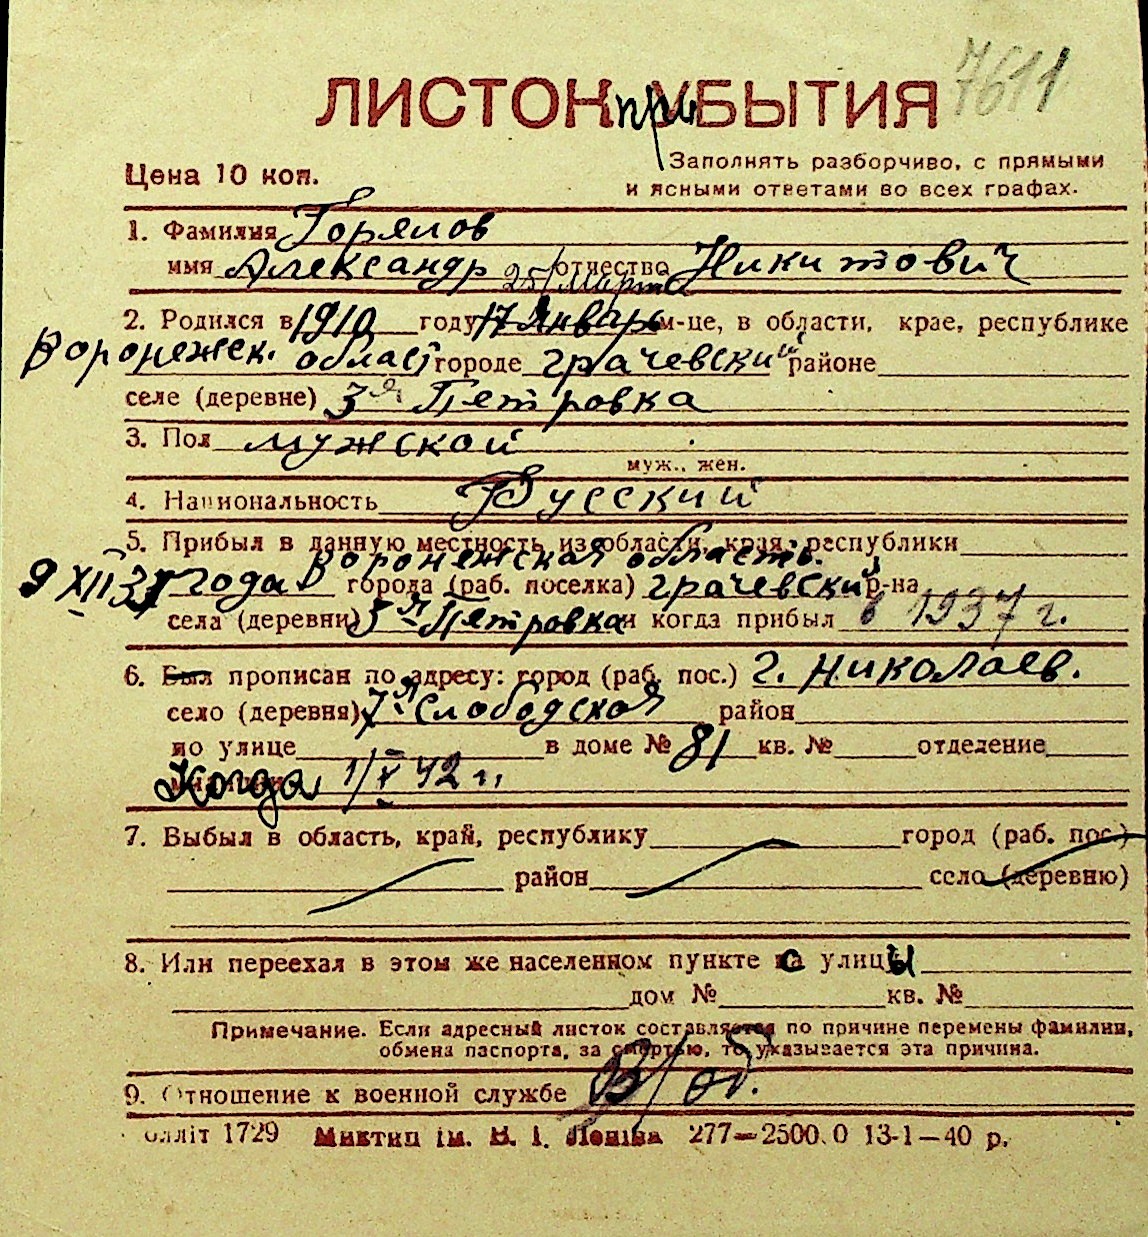 7611
ЛИСТОК при УБЫТИЯ
Цена 10 коп.
Заполнять разборчиво, с прямыми
и ясными ответами во всех графах.
1. Фамилия Горялов
имя Александр отчество Никитович
25/марта
2. Родился в 1910 году 17 Январь м-це, в области, крае, республике
Воронежск. област городе грачевский районе
селе (деревне) 3я Петровка
3. Пол мужской
муж., жен.
4. Национальность Русский
5. Прибыл в данную местность из области, края, республики
Воронежская область.
9 XII 37 года города (раб. поселка) грачевский р-на
села (деревни) 3я Петровка и когда прибыл в 1937 г.
6. Был прописан по адресу: город (раб. пос.) г. Николаев.
село (деревня) 7я Слободская район
по улице в доме № 81 кв. № отделение
Когда 1/V 42 г.
7. Выбыл в область, край, республику город (раб. пос.)
район село (деревню)
8. Или переехал в этом же населенном пункте с улицы
дом № кв. №
Примечание. Если адресный листок составляется по причине перемены фамилии,
обмена паспорта, за смертью, то указывается эта причина.
9. Отношение к военной службе В/об.
олліт 1729 Миктип ім. В. І. Леніна 277—2500.0 13-1—40 р.